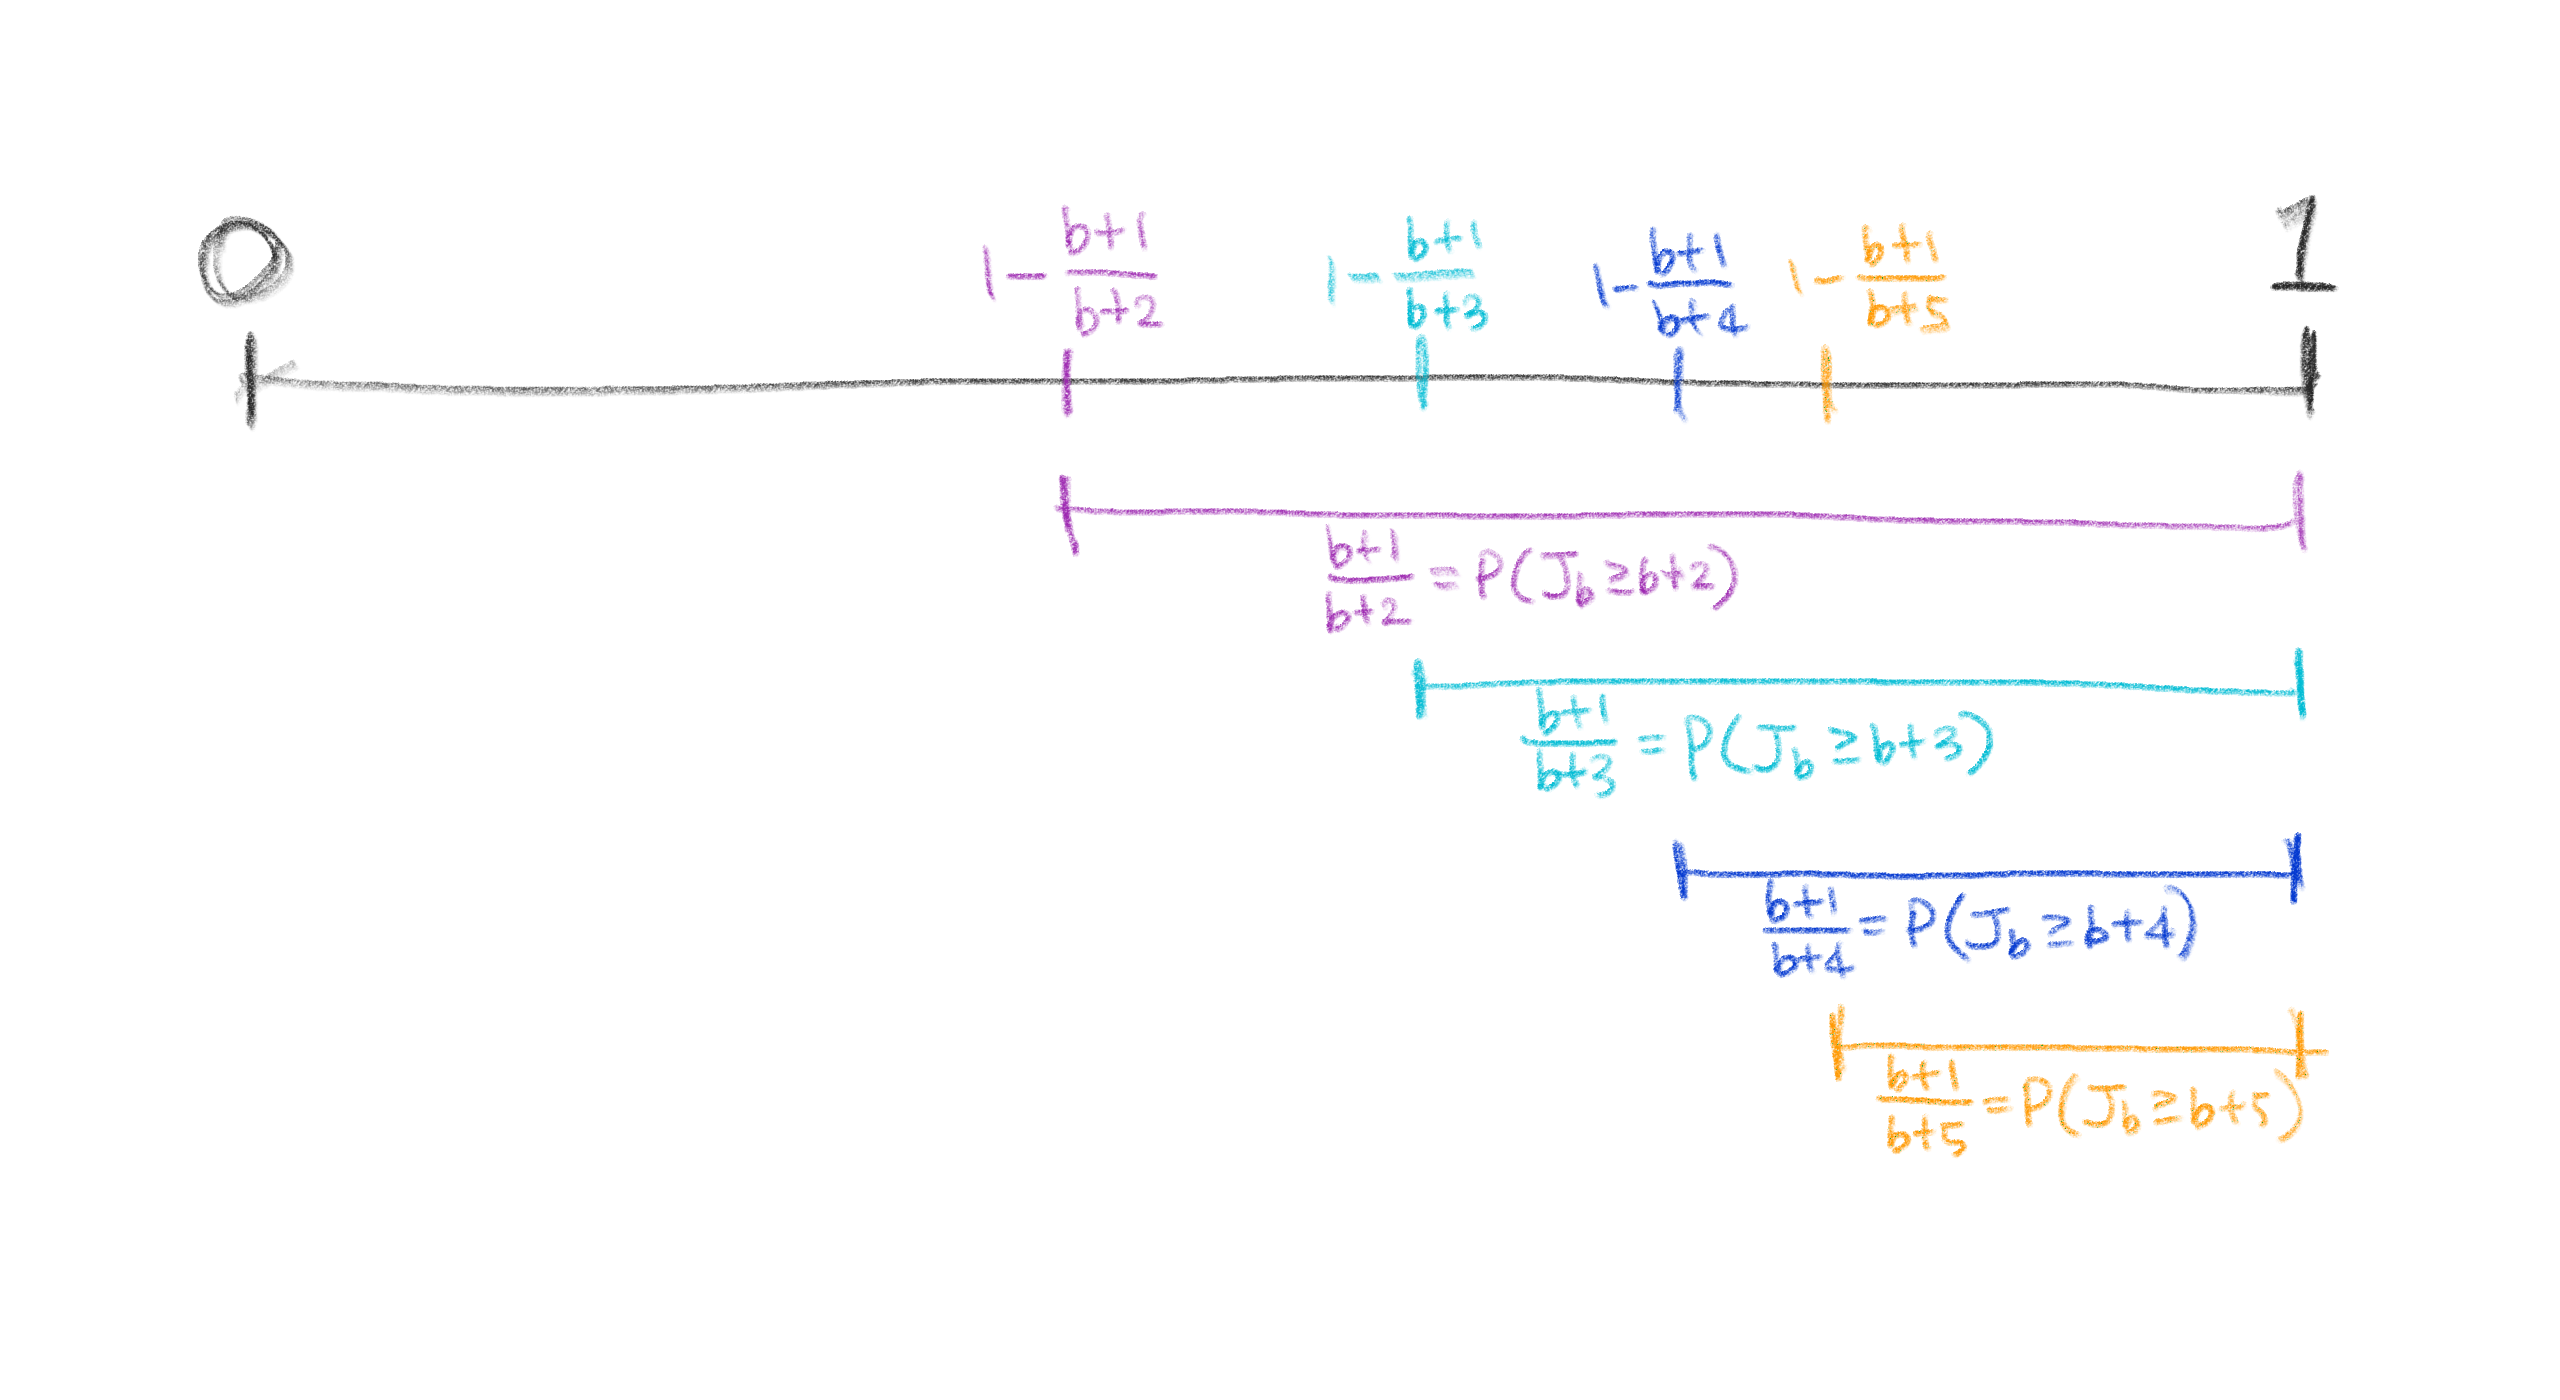 0 1 - \frac{b+1}{b+2} 1 - \frac{b+1}{b+3} 1 - \frac{b+1}{b+4} 1 - \frac{b+1}{b+5} 1
\frac{b+1}{b+2} = P(J_b ≥ b+2)
\frac{b+1}{b+3} = P(J_b ≥ b+3)
\frac{b+1}{b+4} = P(J_b ≥ b+4)
\frac{b+1}{b+5} = P(J_b ≥ b+5)